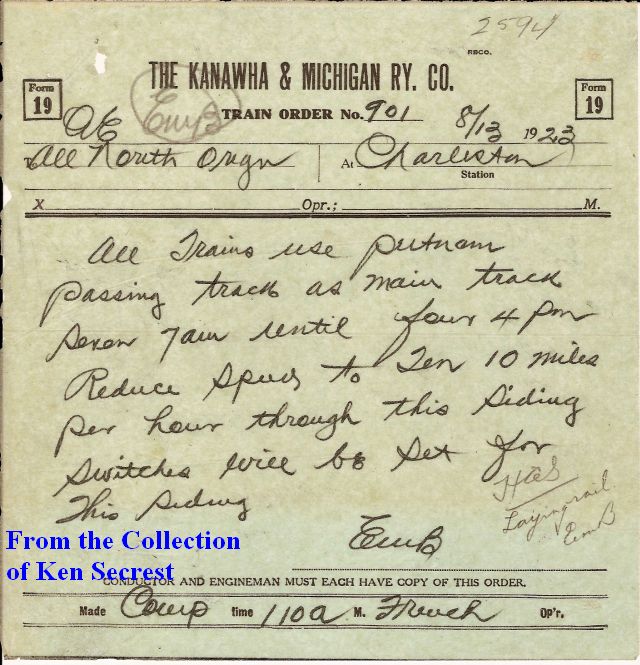 2594
RBCO.
THE KANAWHA & MICHIGAN RY. CO.
Form 19
Form 19
EmB
TRAIN ORDER No. 901 8/13 1923
To All North At Charleston
Station
X Opr.; M.
All Trains use Putnam
passing track as main track
seven 7am until four 4 pm
Reduce speed to Ten 10 miles
per hour through this siding
switches will be set for
This siding
Laying rail
EmB
EmB
From the Collection
of Ken Secrest
CONDUCTOR AND ENGINEMAN MUST EACH HAVE COPY OF THIS ORDER.
Made Comp time 110a M. French Op'r.